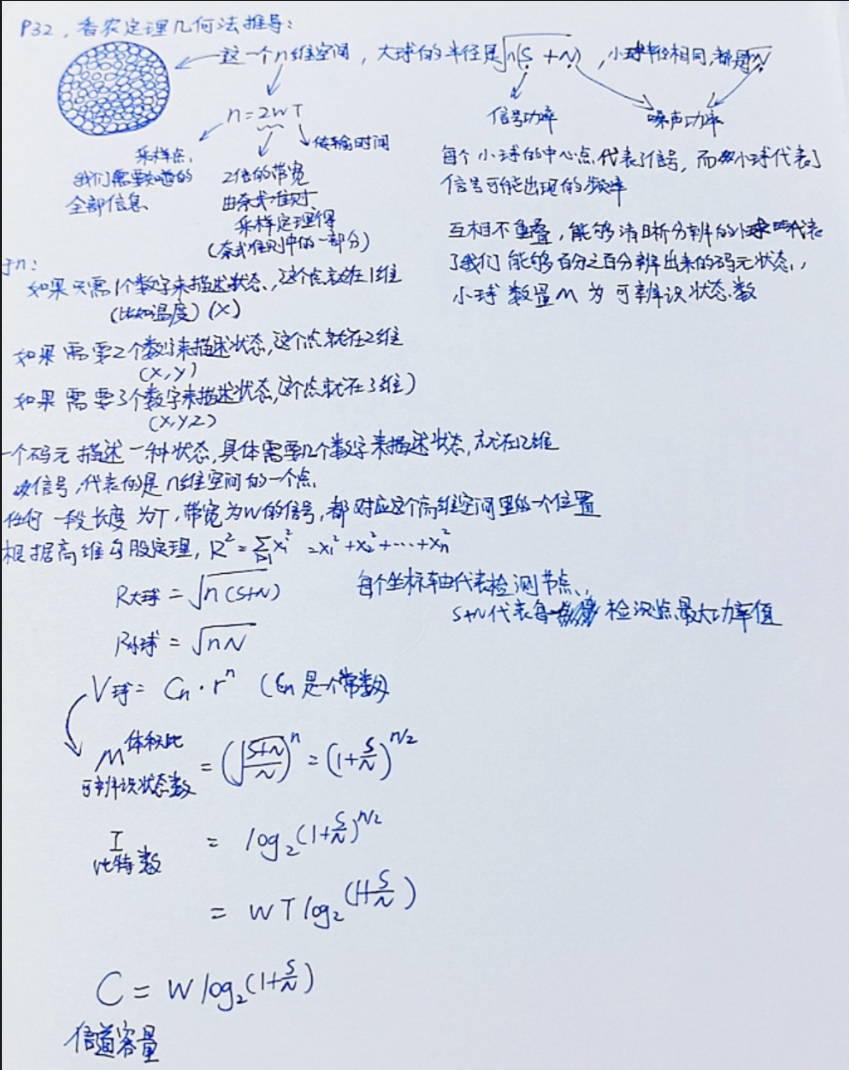 P32, 香农定理几何法推导:
这一个n维空间, 大球的半径是√n(S+N), 小球半径相同, 都是√N
n=2WT
信号功率
噪声功率
传输时间
采样点,
我们需要知道的
全部信息
2倍的带宽
由奈式准则
采样定理得
(奈式准则中的一部分)
每个小球的中心点代表了信号, 而小球代表了
信号可能出现的频率
互相不重叠, 能够清晰分辨的小球代表
了我们能够百分之百分辨出来的码元状态,
小球数量M为可辨识状态数
于n:
如果只需1个数字来描述状态, 这个点就在1维
(比如温度) (X)
如果需要2个数字来描述状态, 这个点就在2维
(X,Y)
如果需要3个数字来描述状态, 这个点就在3维)
(X,Y,Z)
一个码元描述一种状态, 具体需要几个数字来描述状态, 就在几维
信号, 代表的是n维空间的一个点.
任何一段长度为T, 带宽为W的信号, 都对应这个高维空间里的一个位置
根据高维勾股定理, R²=∑xi² =x₁²+x₂²+…+xn²
R大球 = √n(S+N)
每个坐标轴代表检测节点,
S+N代表每一检测点最大功率值
R小球 = √nN
V球 = Cn·rⁿ (Cn是个常数)
M 体积比
可辨识状态数 = (√(S+N)/N)ⁿ = (1+S/N)^n/2
I
比特数 = log₂(1+S/N)^n/2
= WT log₂(1+S/N)
C = W log₂(1+S/N)
信道容量